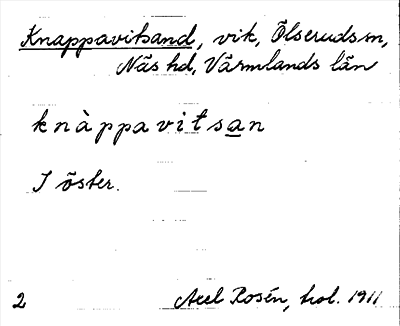 Knappavitsand, vik, Ölseruds sn,
Näs hd, Värmlands län
knàppavitsan
I öster.
2 Axel Rosén, hol. 1911